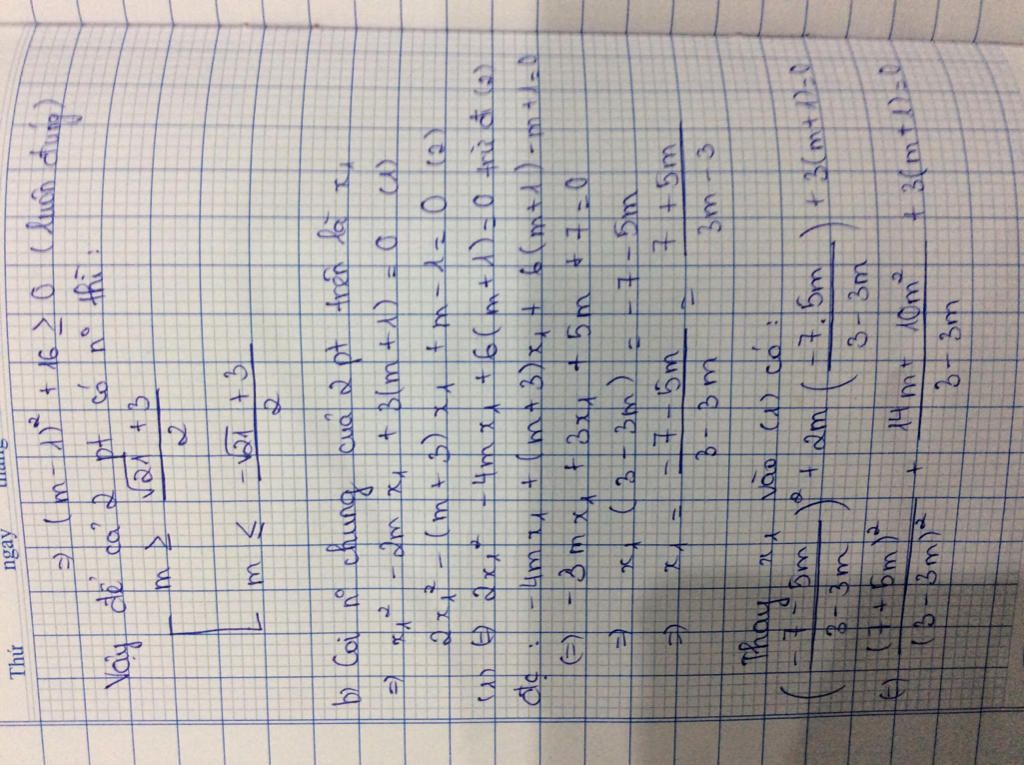 Thứ ngày tháng
=> (m - 1)² + 16 ≥ 0 (luôn đúng)
Vậy để cả 2 pt có n° thì:
[ m ≥ (√21 + 3)/2
m ≤ (-√21 + 3)/2
b) Gọi n° chung của 2 pt trên là x₁
=> x₁² - 2m x₁ + 3(m + 1) = 0 (1)
2x₁² - (m + 3) x₁ + m - 1 = 0 (2)
(1) (=) 2x₁² - 4m x₁ + 6(m + 1) = 0 trừ đi (2)
đc : - 4m x₁ + (m + 3)x₁ + 6(m + 1) - m + 1 = 0
(=) - 3m x₁ + 3x₁ + 5m + 7 = 0
=> x₁ (3 - 3m) = - 7 - 5m
=> x₁ = (- 7 - 5m)/(3 - 3m) = (7 + 5m)/(3m - 3)
Thay x₁ vào (1) có :
((- 7 - 5m)/(3 - 3m))² + 2m ((- 7 . 5m)/(3 - 3m)) + 3(m + 1) = 0
(=) (7 + 5m)²/(3 - 3m)² + (14m + 10m²)/(3 - 3m) + 3(m + 1) = 0